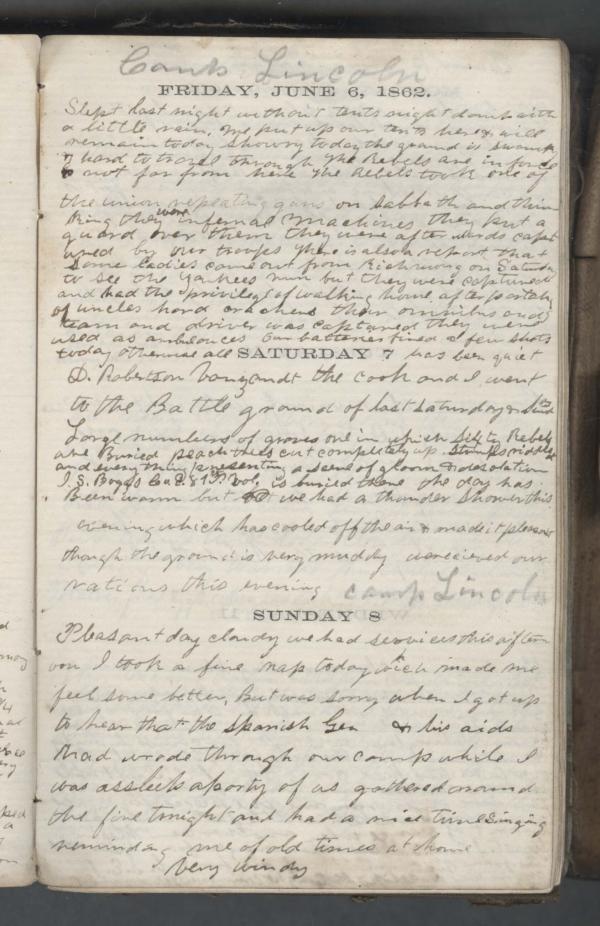 Camp Lincoln
FRIDAY, JUNE 6, 1862.
Slept last night without tents night damp with
a little rain, we put up our tents here & will
remain today showry today the ground is swampy
& hard to travel through The Rebels are in force
not far from here The Rebels took one of
the union repeating guns on Sabbath and thin
king they were infernal machines they put a
guard over them they were after wards capt
ured by our troops There is also a report that
Some ladies came out from Richmond on Saturday
to see the Yankees run but they were captured
and had the privilege of walking home after partak
of uncles hard crackers their omnibus and
team and driver was captured they were
used as ambulances Our batteries fired a few shots
today otherwise all has been quiet
SATURDAY 7
D. Robertson Vanzandt the cook and I went
to the Battle ground of last Saturday
Large numbers of graves one in which Sixty Rebels
are Buried peach trees cut completely up Stumps riddled
and every thing presenting a scene of gloom & desolation
J. S. Boggs Co 81 P. Vol. is buried there the day has
Been warm but we had a thunder shower this
evening which has cooled off the air & made it pleasant
though the ground is very muddy we recieved our
rations this evening camp Lincoln
SUNDAY 8
Pleasant day cloudy we had services this after
noon I took a fine nap today wich made me
feel some better, But was sorry when I got up
to hear that the Spanish Gen & his aids
had wrode through our camp while I
was assleep a party of us gathered around
the fire tonight and had a nice time singing
reminding me of old times at home
Very windy